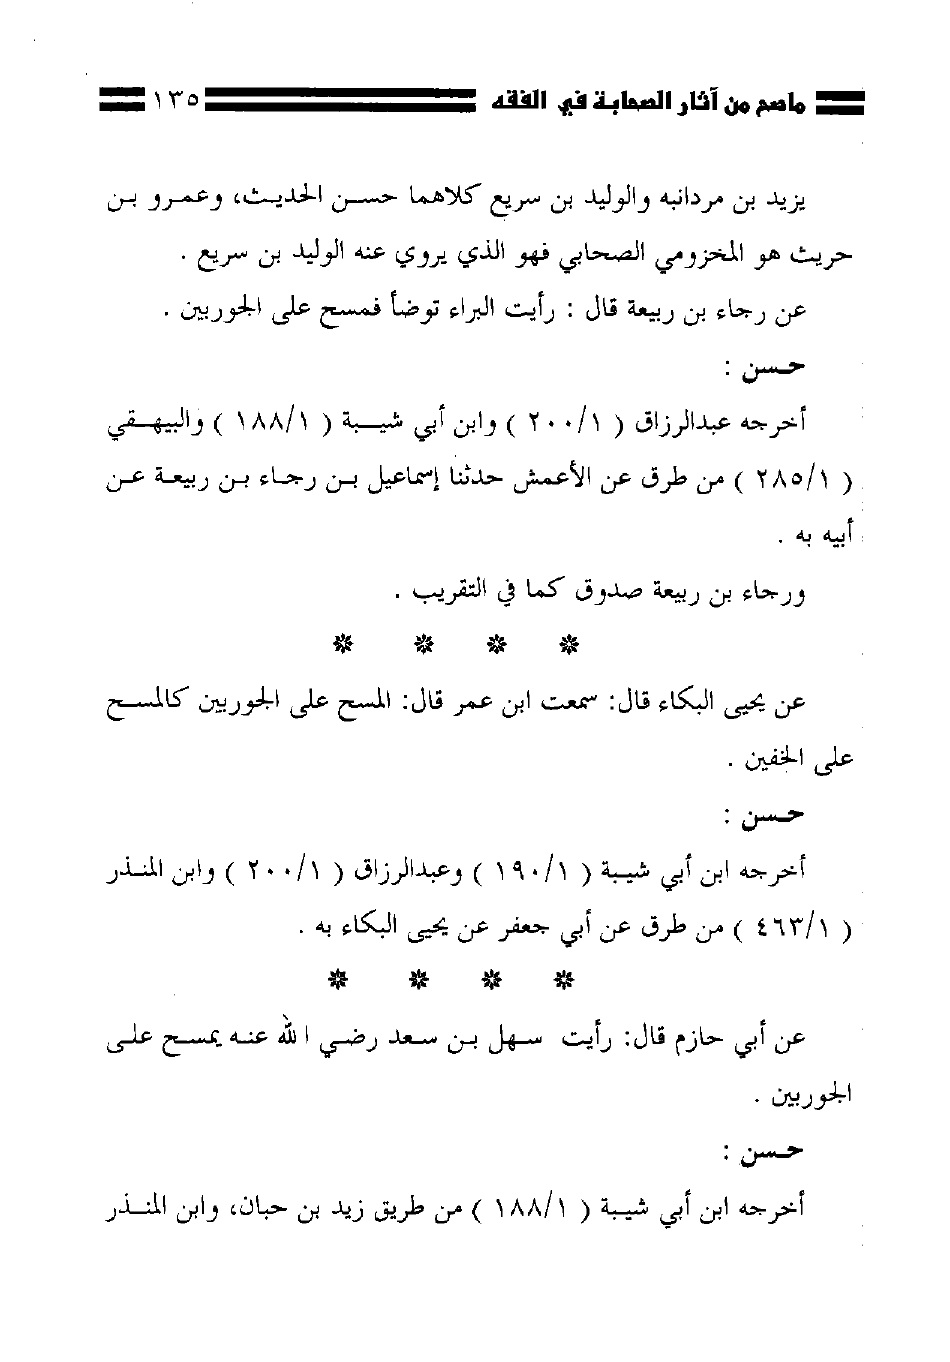 ماصح من آثار الصحابة في الفقه ١٣٥
يزيد بن مردانبه والوليد بن سريع كلاهما حسن الحديث، وعمرو بن
حريث هو المخزومي الصحابي فهو الذي يروي عنه الوليد بن سريع .
عن رجاء بن ربيعة قال : رأيت البراء توضأ فمسح على الجوربين .
حسن :
أخرجه عبدالرزاق ( ٢٠٠/١ ) وابن أبي شيبة ( ١٨٨/١ ) والبيهقي
( ٢٨٥/١ ) من طرق عن الأعمش حدثنا إسماعيل بن رجاء بن ربيعة عن
أبيه به .
ورجاء بن ربيعة صدوق كما في التقريب .
عن يحيى البكاء قال: سمعت ابن عمر قال: المسح على الجوربين كالمسح
على الخفين .
حسن :
أخرجه ابن أبي شيبة ( ١٩٠/١ ) وعبدالرزاق ( ٢٠٠/١ ) وابن المنذر
( ٤٦٣/١ ) من طرق عن أبي جعفر عن يحيى البكاء به .
عن أبي حازم قال: رأيت سهل بن سعد رضي الله عنه يمسح على
الجوربين .
حسن :
أخرجه ابن أبي شيبة ( ١٨٨/١ ) من طريق زيد بن حبان، وابن المنذر